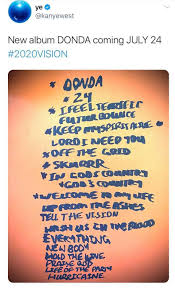 ye
@kanyewest
New album DONDA coming JULY 24
#2020VISION
* DONDA
* 24
* I FEEL TERRIFIC
FUTURE BOUNCE
* KEEP MY SPIRIT ALIVE
LORD I NEED YOU
* OFF THE GRID
* SKURRR
* IN GODS COUNTRY
* GOD'S COUNTRY
* WELCOME TO MY LIFE
UP FROM THE ASHES
TELL THE VISION
WASH US IN THE BLOOD
EVERYTHING
NEW BODY
HOLD THE LINE
PRAISE GOD
LIFE OF THE PARTY
HURRICAINE